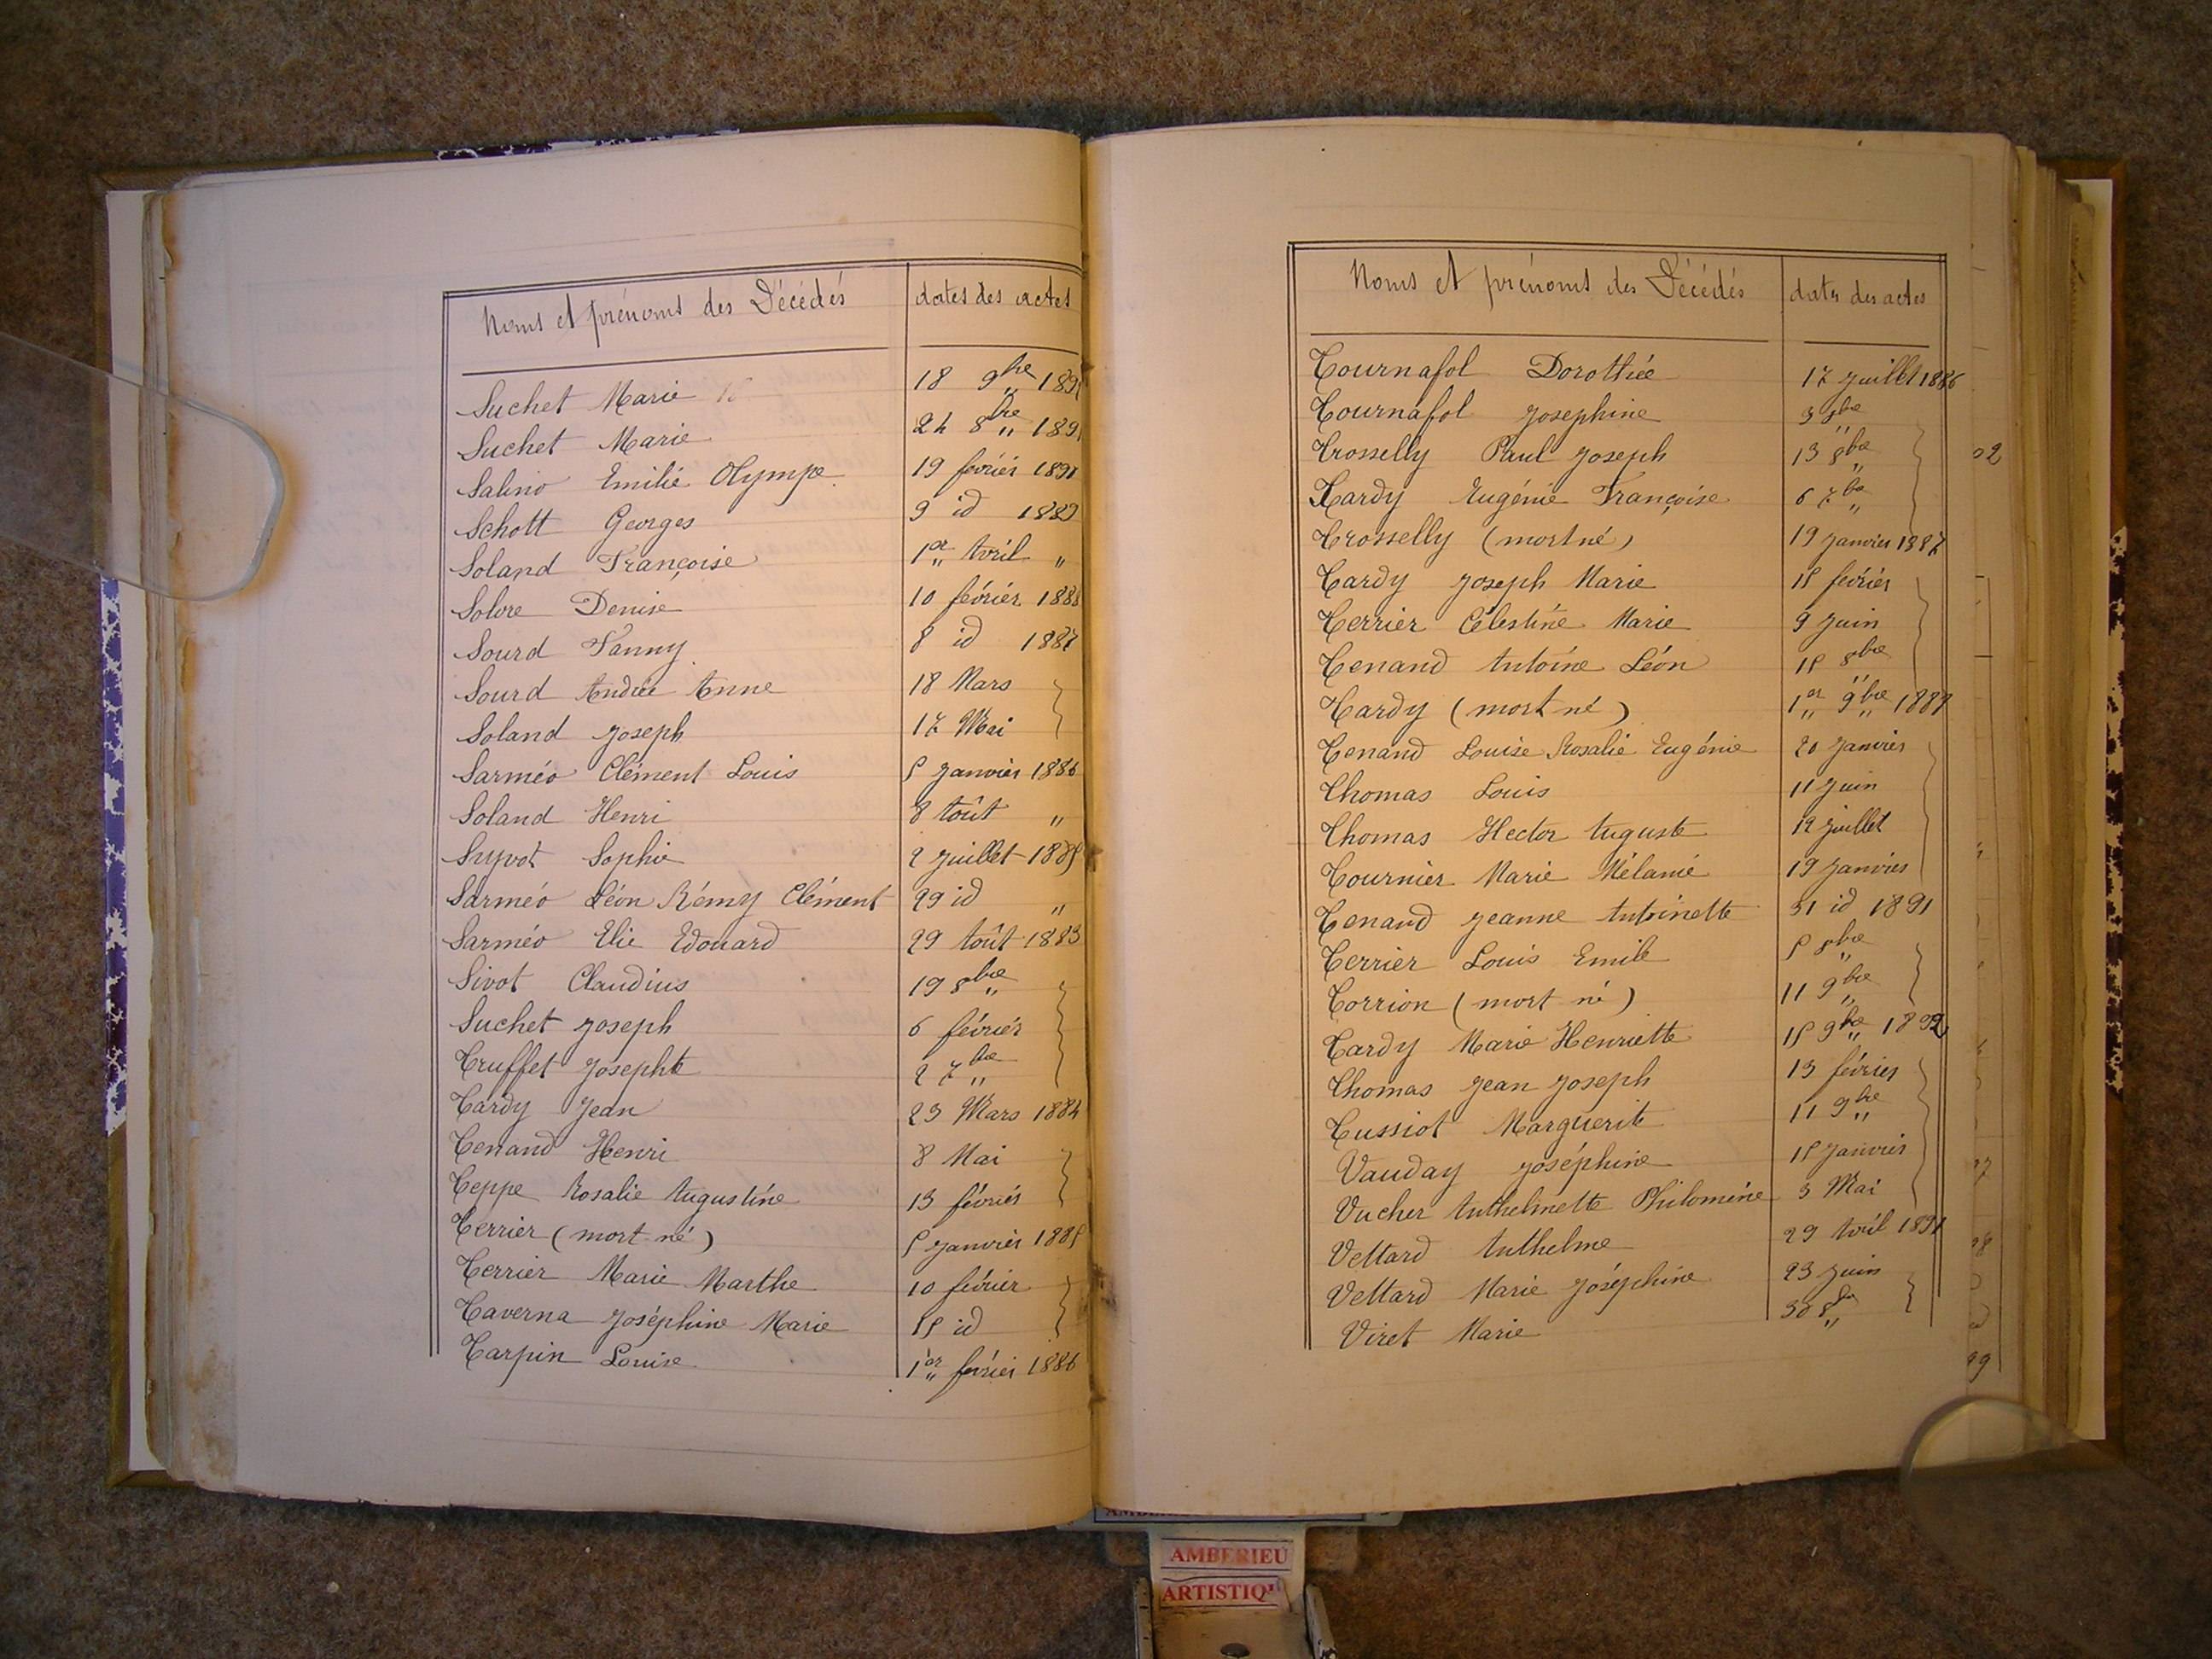 Noms et prénoms des Décédés dates des actes
Suchet Marie 18 9bre 1891
Suchet Marie 24 8bre 1891
Salino Emilie Olympe 19 février 1891
Schott Georges 9 id 1889
Soland Françoise 1er Avril "
Solvre Denise 10 février 1888
Sourd Fanny 8 id 1887
Sourd Andrée Anne 18 Mars
Soland Joseph 17 Mai
Sarméo Clément Louis 5 Janvier 1886
Soland Henri 8 Aôut "
Suyvot Sophie 2 Juillet 1885
Sarméo Léon Rémy Clément 29 id "
Sarméo Elie Edouard 29 Aôut 1883
Sivot Claudius 19 8bre
Suchet Joseph 6 février
Truffet Josephte 2 7bre
Tardy Jean 23 Mars 1884
Tenand Henri 8 Mai
Teppe Rosalie Augustine 13 février
Terrier (mort né) 5 Janvier 1885
Terrier Marie Marthe 10 février
Taverna Joséphine Marie 15 id
Tarpin Louise 1er février 1886
Noms et prénoms des Décédés dates des actes
Tournafol Dorothée 17 Juillet 1886
Tournafol Josephine 3 8bre
Trosselly Paul Joseph 13 8bre
Tardy Eugénie Françoise 6 7bre
Trosselly (mort né) 19 Janvier 1887
Tardy Joseph Marie 15 février
Terrier Célestine Marie 9 Juin
Tenand Antoine Léon 15 8bre
Tardy (mort né) 1er 9bre
Tenand Louise Rosalie Eugénie 20 Janvier
Thomas Louis 11 Juin
Thomas Hector Auguste 12 Juillet
Tournier Marie Mélanie 19 Janvier
Tenand Jeanne Antoinette 31 id 1891
Terrier Louis Emile 5 8bre
Torrion (mort né) 11 9bre
Tardy Marie Henriette 15 9bre 1892
Thomas Jean Joseph 13 février
Tussiot Marguerite 11 9bre
Vauday Joséphine 15 Janvier
Vucher Anthelmette Philomène 3 Mai
Vettard Anthelme 29 Avril 1891
Vettard Marie Joséphine 23 Juin
Viret Marie 30 8bre
AMBERIEU
ARTISTIQ